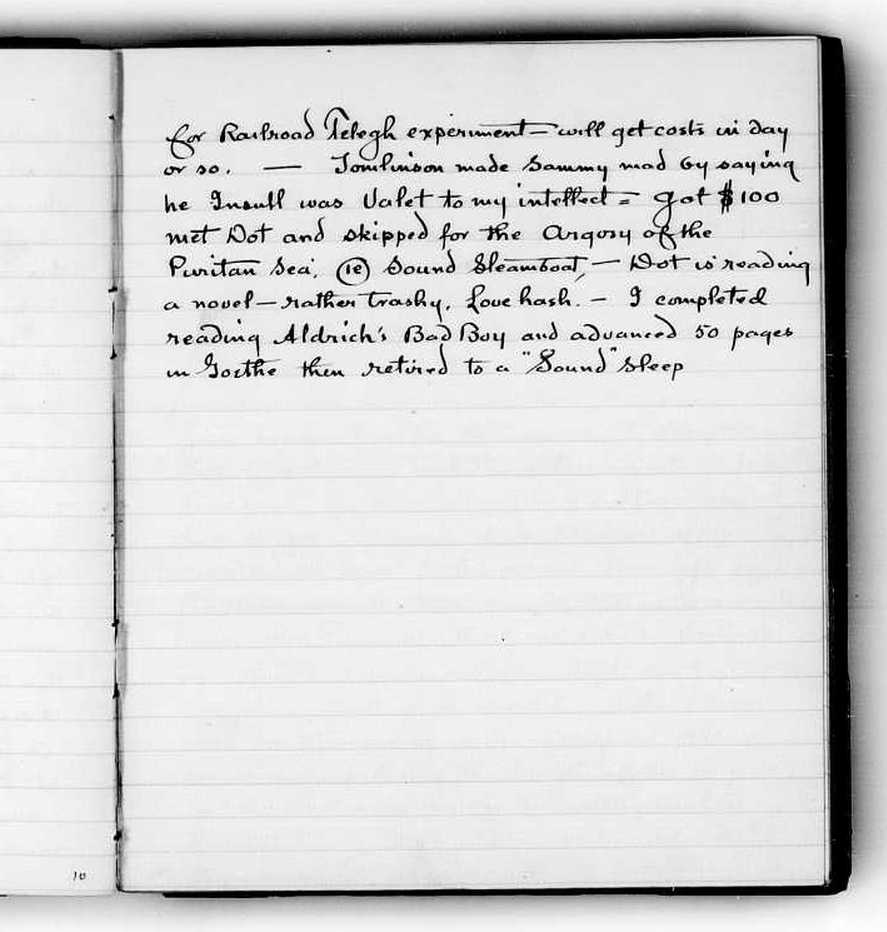 for Railroad Telegh experiment — will get costs in day
or so. — Tomlinson made Sammy mad by saying
he Insull was Valet to my intellect = got $100
met Dot and skipped for the Argosy of the
Puritan Sea, (ie) Sound Steamboat, — Dot is reading
a novel — rather trashy, Love hash. — I completed
reading Aldrich's Bad Boy and advanced 50 pages
in Goethe then retired to a "Sound" sleep
10